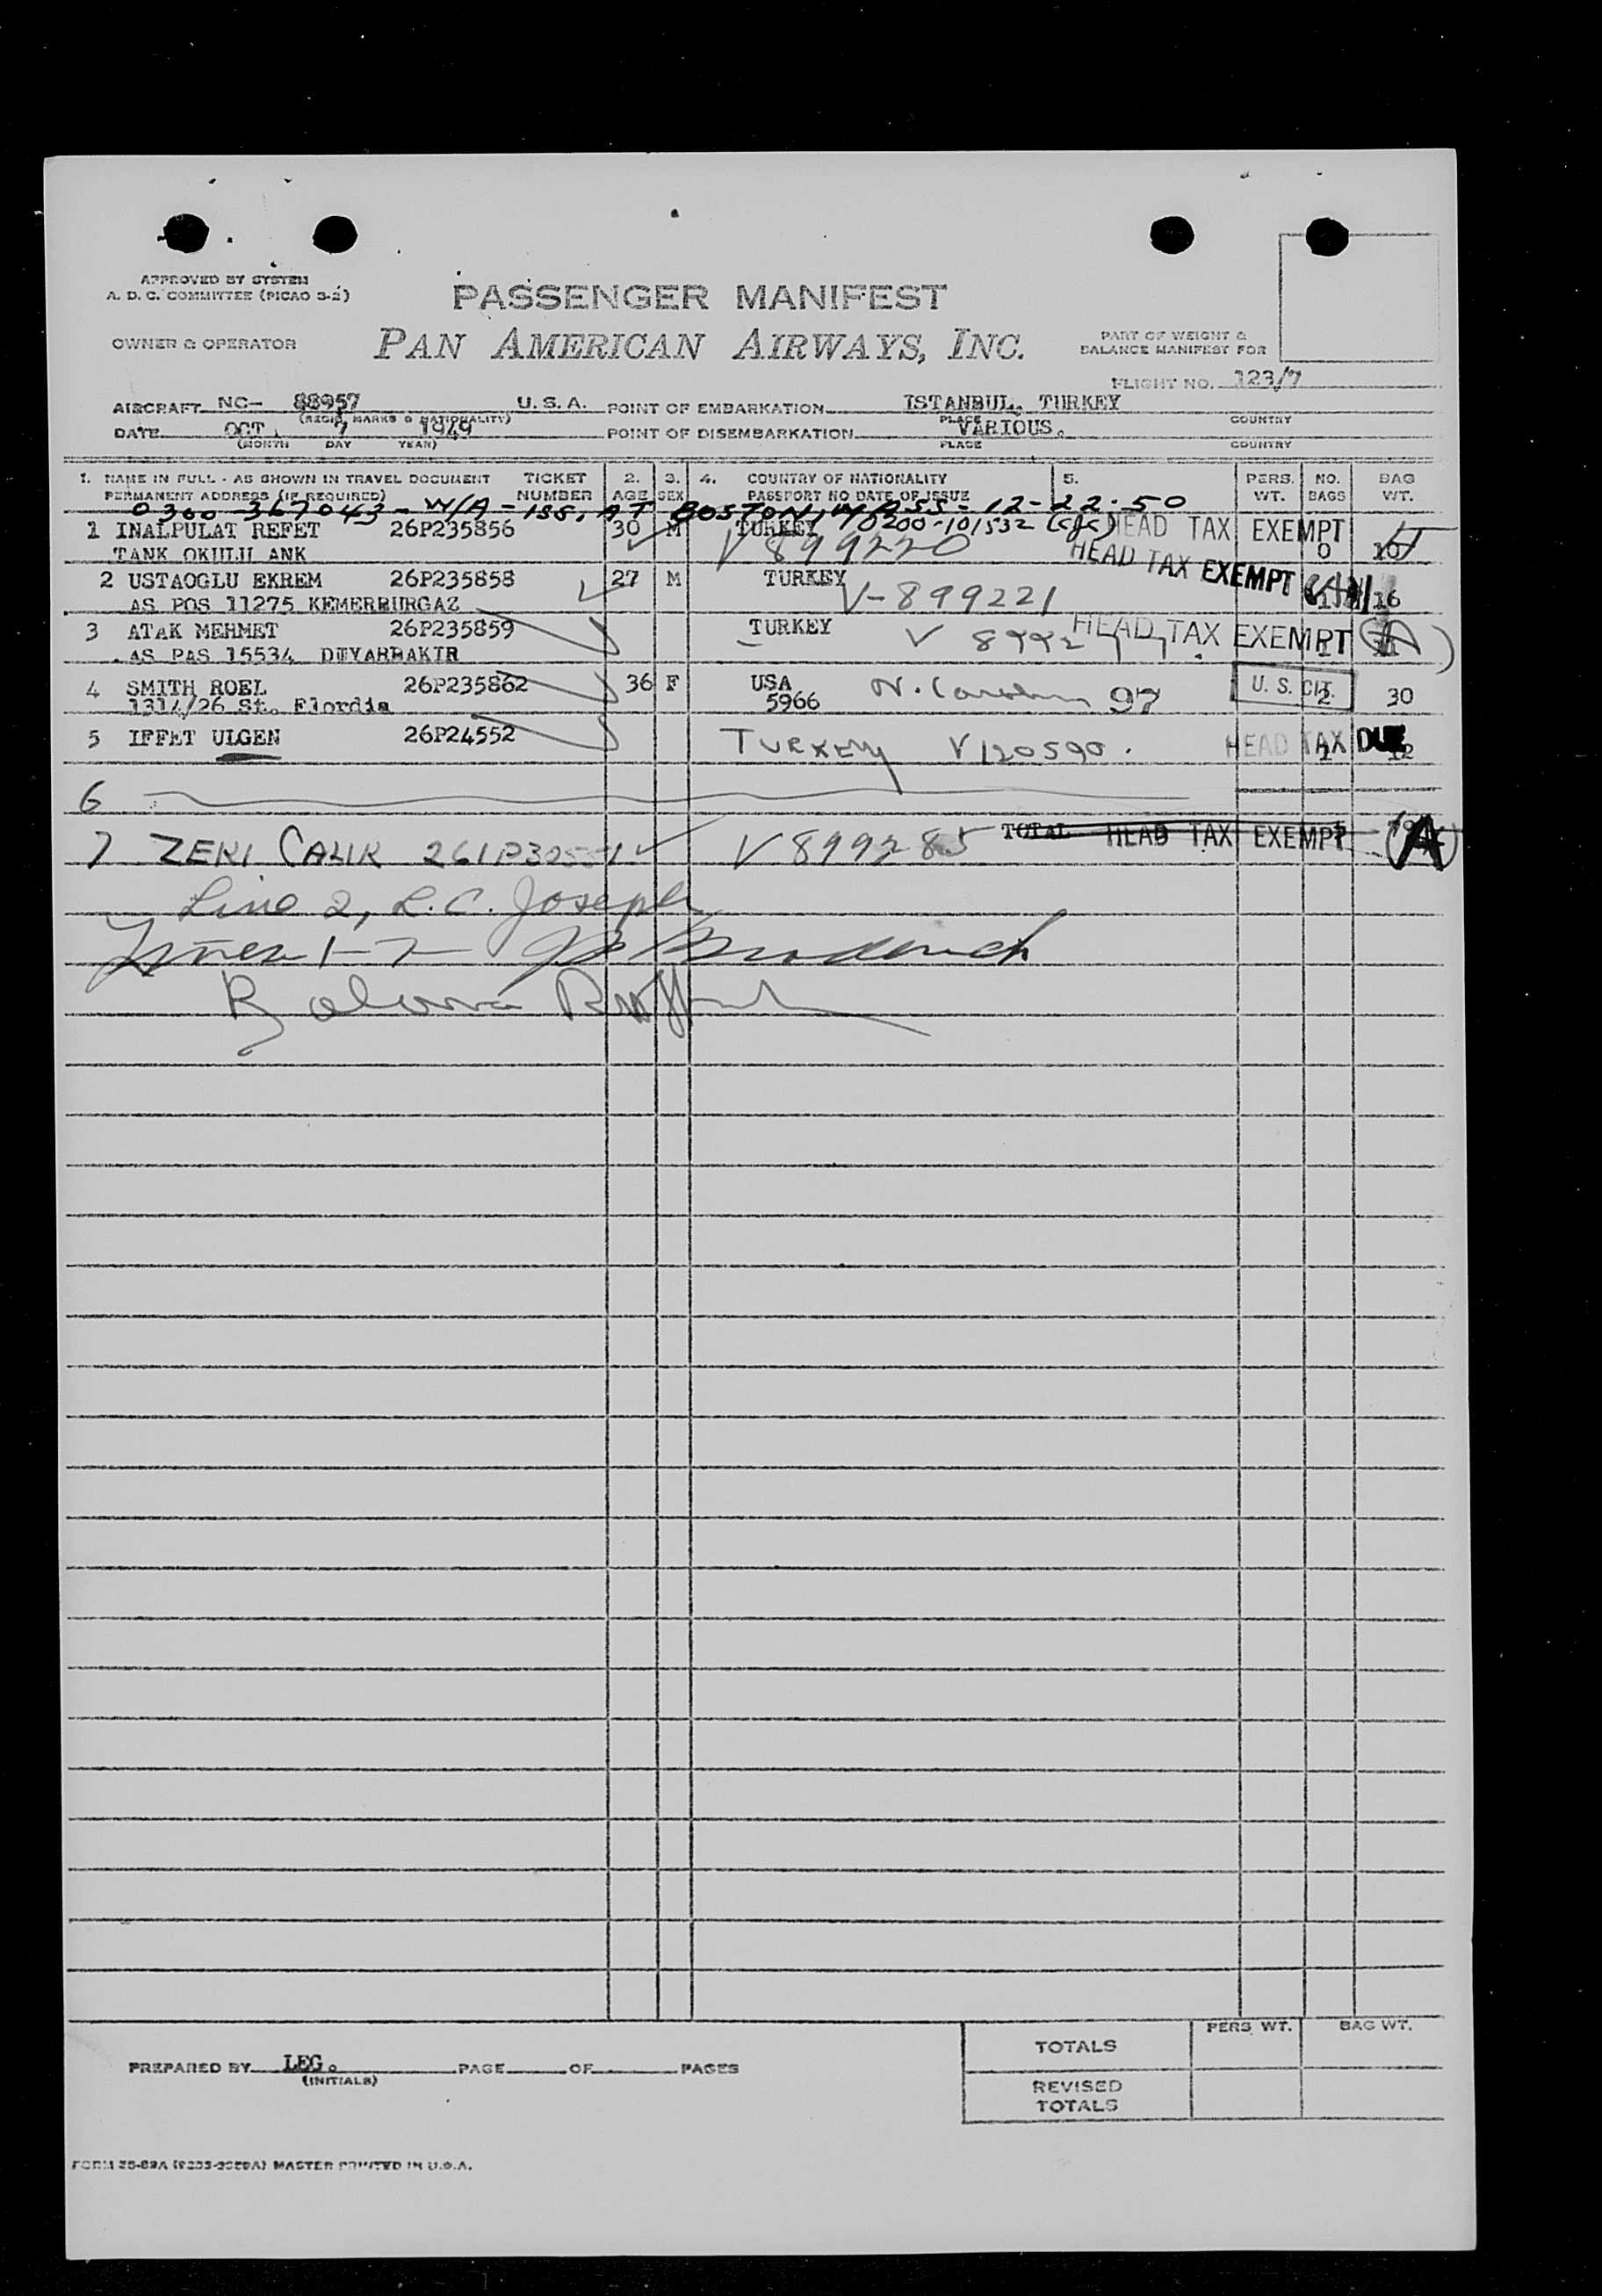 APPROVED BY SYSTEM
A. D. C. COMMITTEE (PICAO 3-2)
PASSENGER MANIFEST
OWNER & OPERATOR PAN AMERICAN AIRWAYS, INC.
PART OF WEIGHT &
BALANCE MANIFEST FOR
FLIGHT NO. 123/7
AIRCRAFT NC- 88957 U. S. A. POINT OF EMBARKATION ISTANBUL, TURKEY
(REGIS. MARKS & NATIONALITY) PLACE COUNTRY
DATE OCT. 7 1949 POINT OF DISEMBARKATION VARIOUS.
(MONTH DAY YEAR) PLACE COUNTRY
1. NAME IN FULL - AS SHOWN IN TRAVEL DOCUMENT TICKET 2. 3. 4. COUNTRY OF NATIONALITY 5. PERS. NO. BAG
PERMANENT ADDRESS (IF REQUIRED) NUMBER AGE SEX PASSPORT NO DATE OF ISSUE WT. BAGS WT.
0300-367043 - W/A - ISS. AT BOSTON, MASS - 12-22-50
1 INALPULAT REFET 26P235856 30 M TURKEY 0200-101532 HEAD TAX EXEMPT
TANK OKULU ANK V 899220 0 10
HEAD TAX EXEMPT
2 USTAOGLU EKREM 26P235858 27 M TURKEY
AS POS 11275 KEMERBURGAZ V-899221 1 16
3 ATAK MEHMET 26P235859 TURKEY V HEAD TAX EXEMPT
AS PAS 15534 DIYARBAKIR
4 SMITH ROEL 26P235862 36 F USA N. Carolina 97 U. S. CIT. 2 30
1314/26 St. Flordia 5966
5 IFFET ULGEN 26P24552 TURKEY V120590. HEAD TAX DUE 12
6
7 ZEKI CALIK V 899285 TOTAL HEAD TAX EXEMPT
Line 2, L.C. Joseph
Lines 1-7
PREPARED BY LEG. PAGE OF PAGES
(INITIALS)
PERS. WT. BAG WT.
TOTALS
REVISED
TOTALS
MASTER PRINTED IN U.S.A.